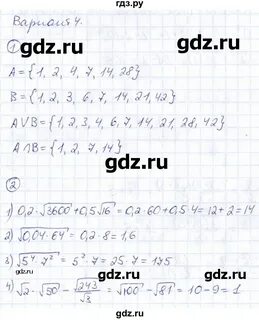 гдз.ру
Вариант 4.
① gdz.ru gdz.ru
A = {1, 2, 4, 7, 14, 28}
B = {1, 2, 3, 6, 7, 14, 21, 42}
A∪B = {1, 2, 3, 4, 6, 7, 14, 21, 28, 42}
A∩B = {1, 2, 7, 14}
gdz.ru gdz.ru
②
1) 0,2·√3600 + 0,5√16 = 0,2·60 + 0,5·4 = 12 + 2 = 14
2) √0,04·64 = 0,2·8 = 1,6
gdz.ru gdz.ru
3) √5⁴·7² = 5²·7 = 25·7 = 175
4) √2·√50 − √243/√3 = √100 − √81 = 10 − 9 = 1
gdz.ru gdz.ru